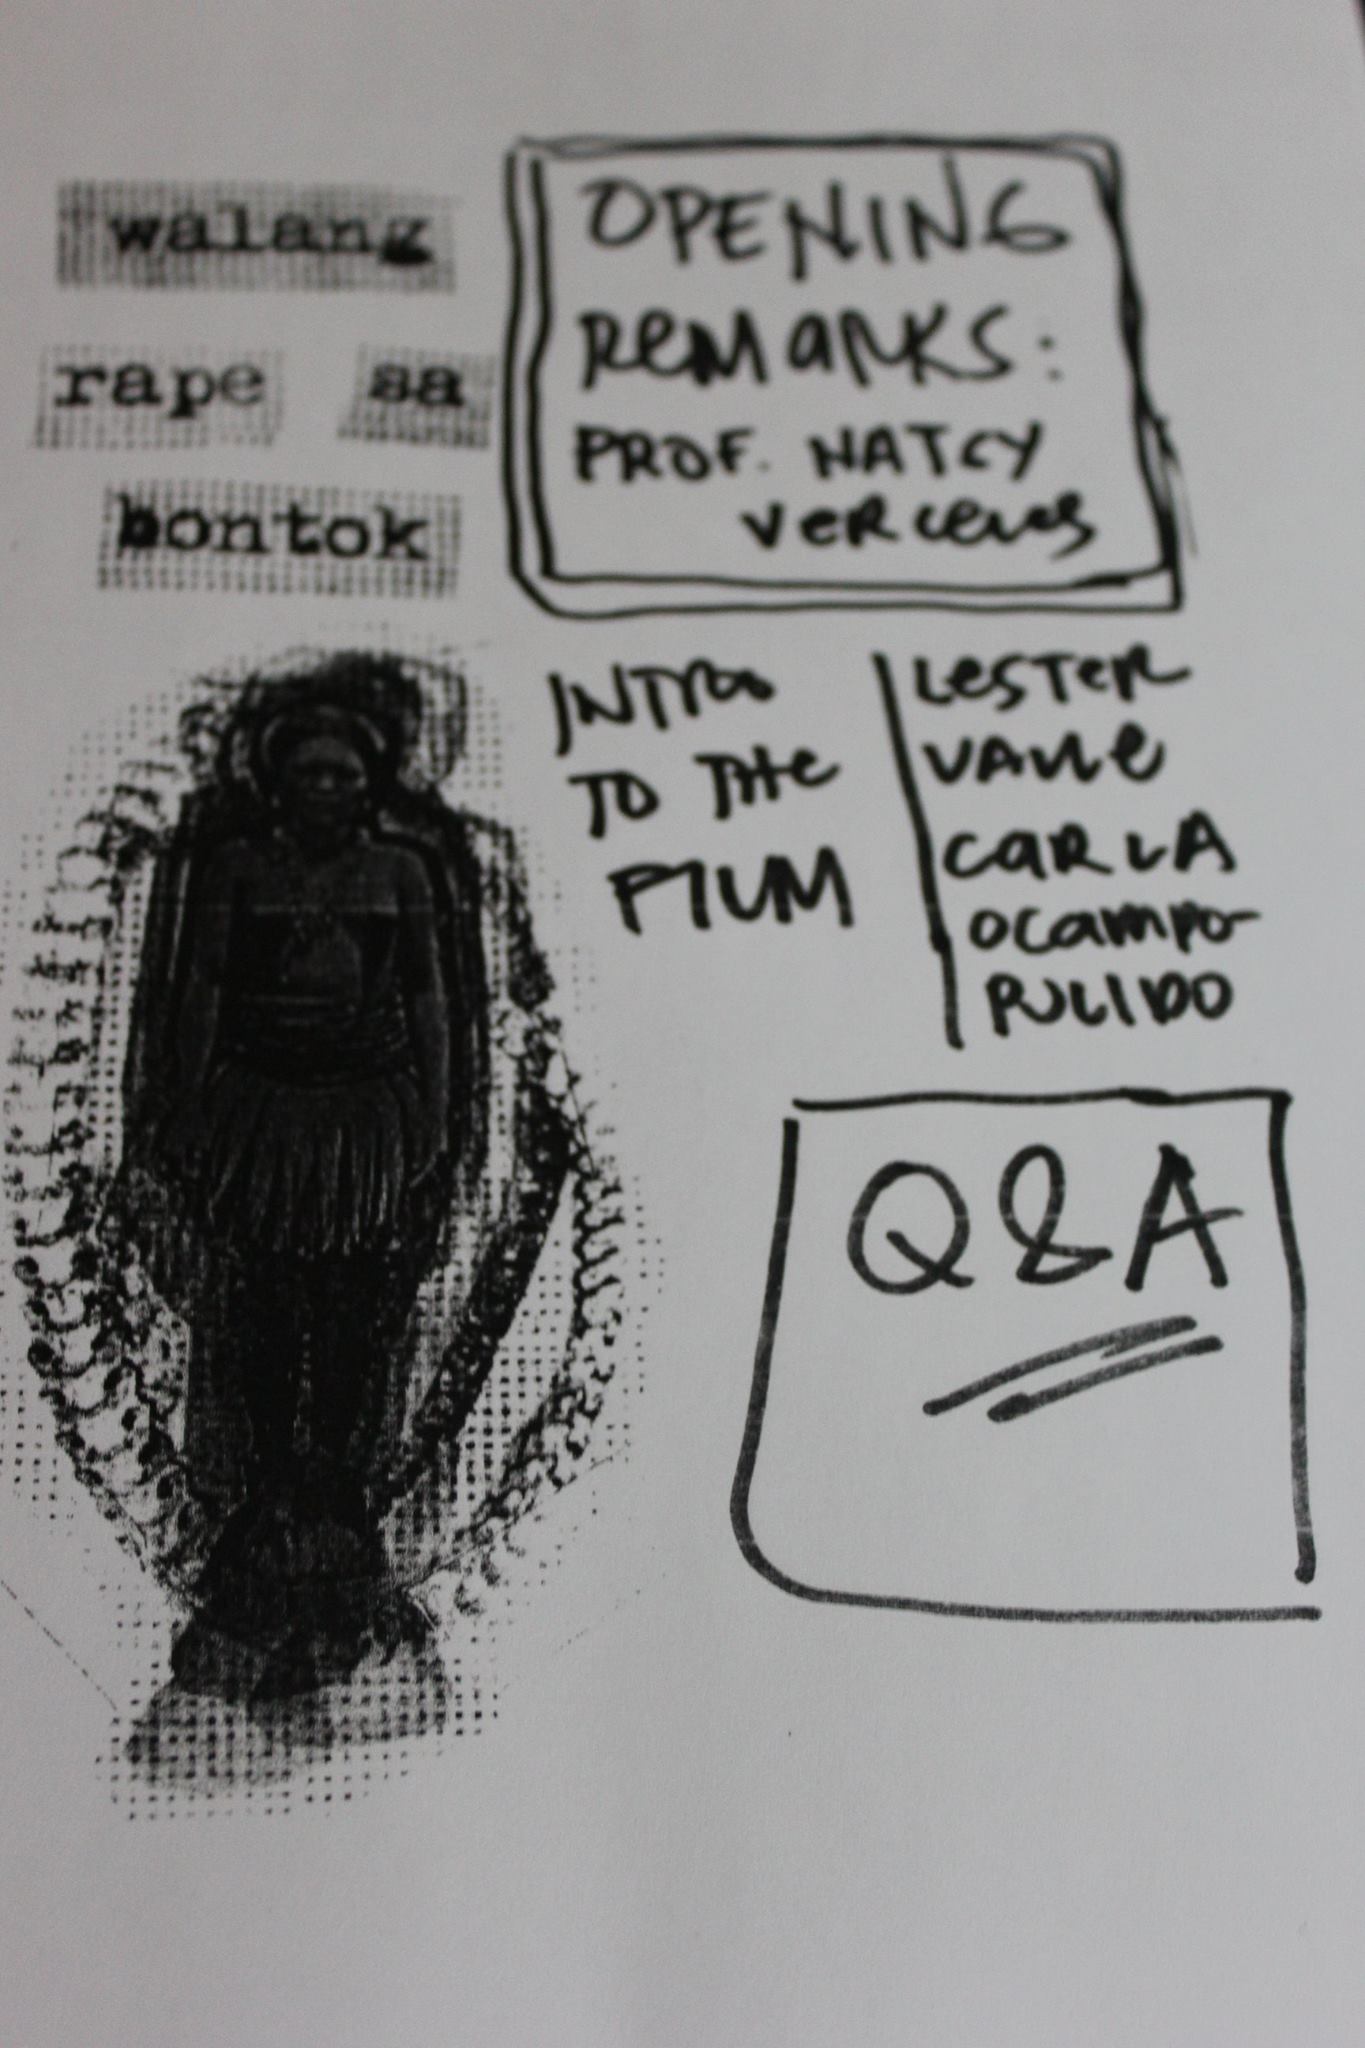 walang
rape sa
bontok
OPENING
REMARKS:
PROF. NATCY
VERCELES
INTRO
TO THE
FILM
LESTER
VALLE
CARLA
OCAMPO-
PULIDO
Q&A